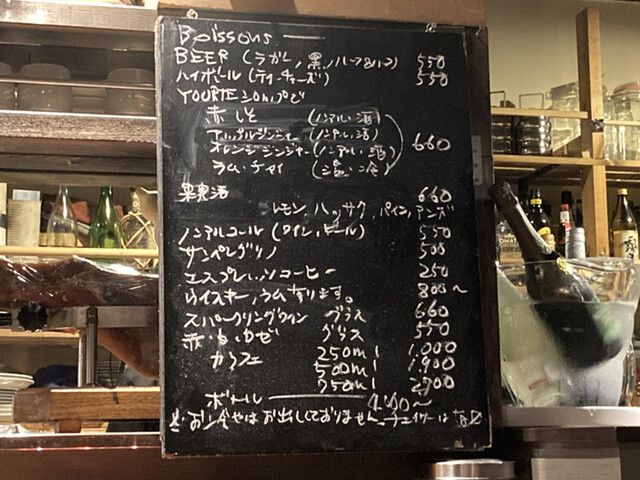 Boissons
BEER (ラガー, 黒, ハーフ&ハーフ) 550
ハイボール (ティーチャーズ) 550
赤しそ (ノンアル・酒)
アップルジンジャー (ノンアル・酒)
オレンジジンジャー (ノンアル・酒) 660
ラム・チャイ (温・冷)
果実酒 660
レモン, ハッサク, パイン, アンズ
ノンアルコール (ワイン, ビール) 550
サンペレグリノ 500
エスプレッソコーヒー 250
ウイスキー, ラム有ります。 800〜
スパークリングワイン グラス 660
赤・白・ロゼ グラス 550
カラフェ 250ml 1.000
500ml 1.900
750ml 2.700
ボトル
お冷やはお出ししておりません。チェイサーは